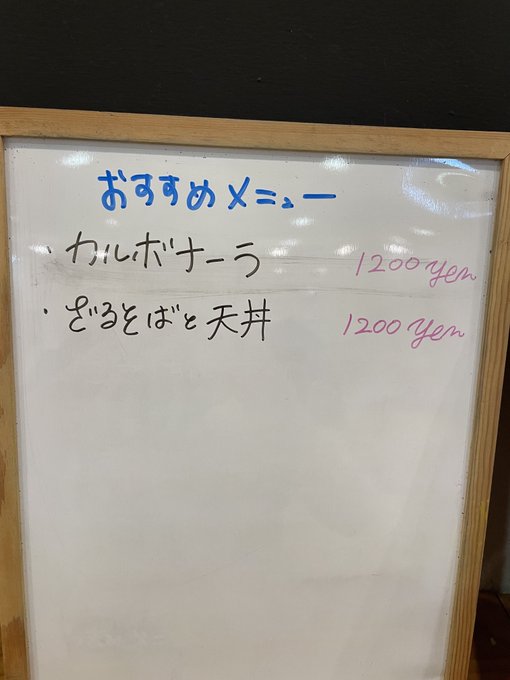 おすすめメニュー
・カルボナーラ 1200 yen
・ざるそばと天丼 1200 yen